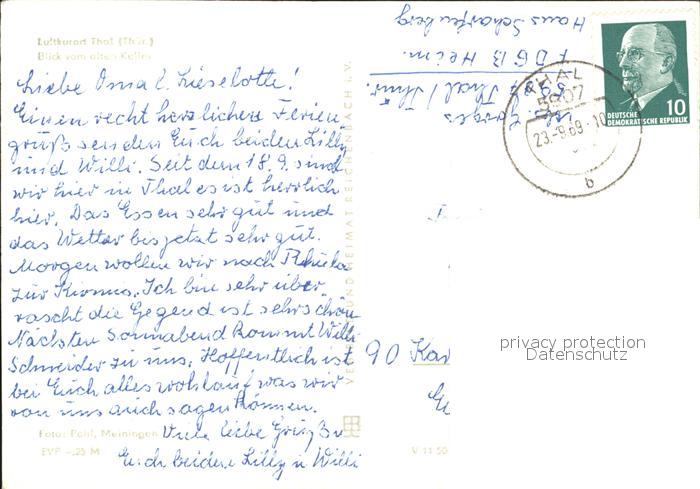 Luftkurort Thal (Thür.)
Blick vom alten Keller
Liebe Oma u. Lieselotte!
Einen recht herzlichen Ferien
gruß senden Euch beiden Lilly
und Willi. Seit dem 18.9. sind
wir hier in Thal es ist herrlich
hier. Das Essen sehr gut und
das Wetter bis jetzt sehr gut.
Morgen wollen wir nach Ruhla
zur Kirmes. Ich bin sehr über
rascht die Gegend ist sehr schön
Nächsten Sonnabend kommt Willi
Schneider zu uns. Hoffentlich ist
bei Euch alles wohlauf was wir
von uns auch sagen können.
Viele liebe Grüße
Euch beiden Lilly u Willi
Foto: Pohl, Meiningen
EVP –,25 M
V 11 50
Haus Scharfenberg
FDGB Heim
Thal / Thür
THAL
5907
23.-9.69.-10
b
10
DEUTSCHE
DEMOKRATISCHE REPUBLIK
90 Kar
privacy protection
Datenschutz